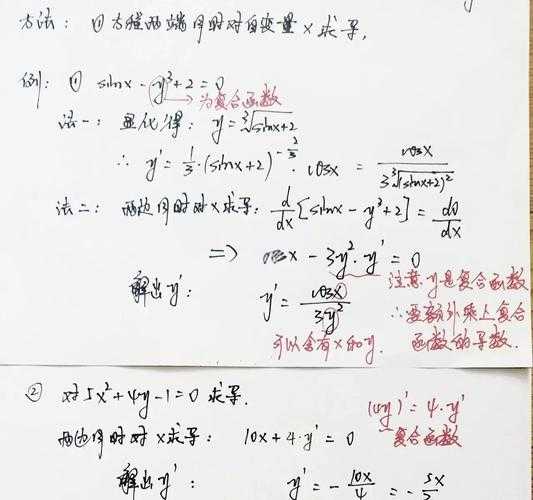 方法: ① 方程两端同时对自变量 x 求导,
例: ① sinx - y³+2=0
→ 为复合函数
法一: 显化得: y=∛(sinx+2)
∴ y'=1/3·(sinx+2)^(-2/3)·cosx = cosx/(3∛(sinx+2)²)
法二: 两边同时对 x 求导: d/dx[sinx-y³+2]=d0/dx
=> cosx-3y²·y'=0
注意 y是复合函数
解出y': y'=cosx/3y²
∴要额外乘上复合
函数的导数.
可以含有 x 和 y.
② 对5x²+4y-1=0 求导.
(4y)'=4·y'
两边同时对 x 求导: 10x+4·y'=0
复合函数
解出y': y'=-10x/4=-5x/2